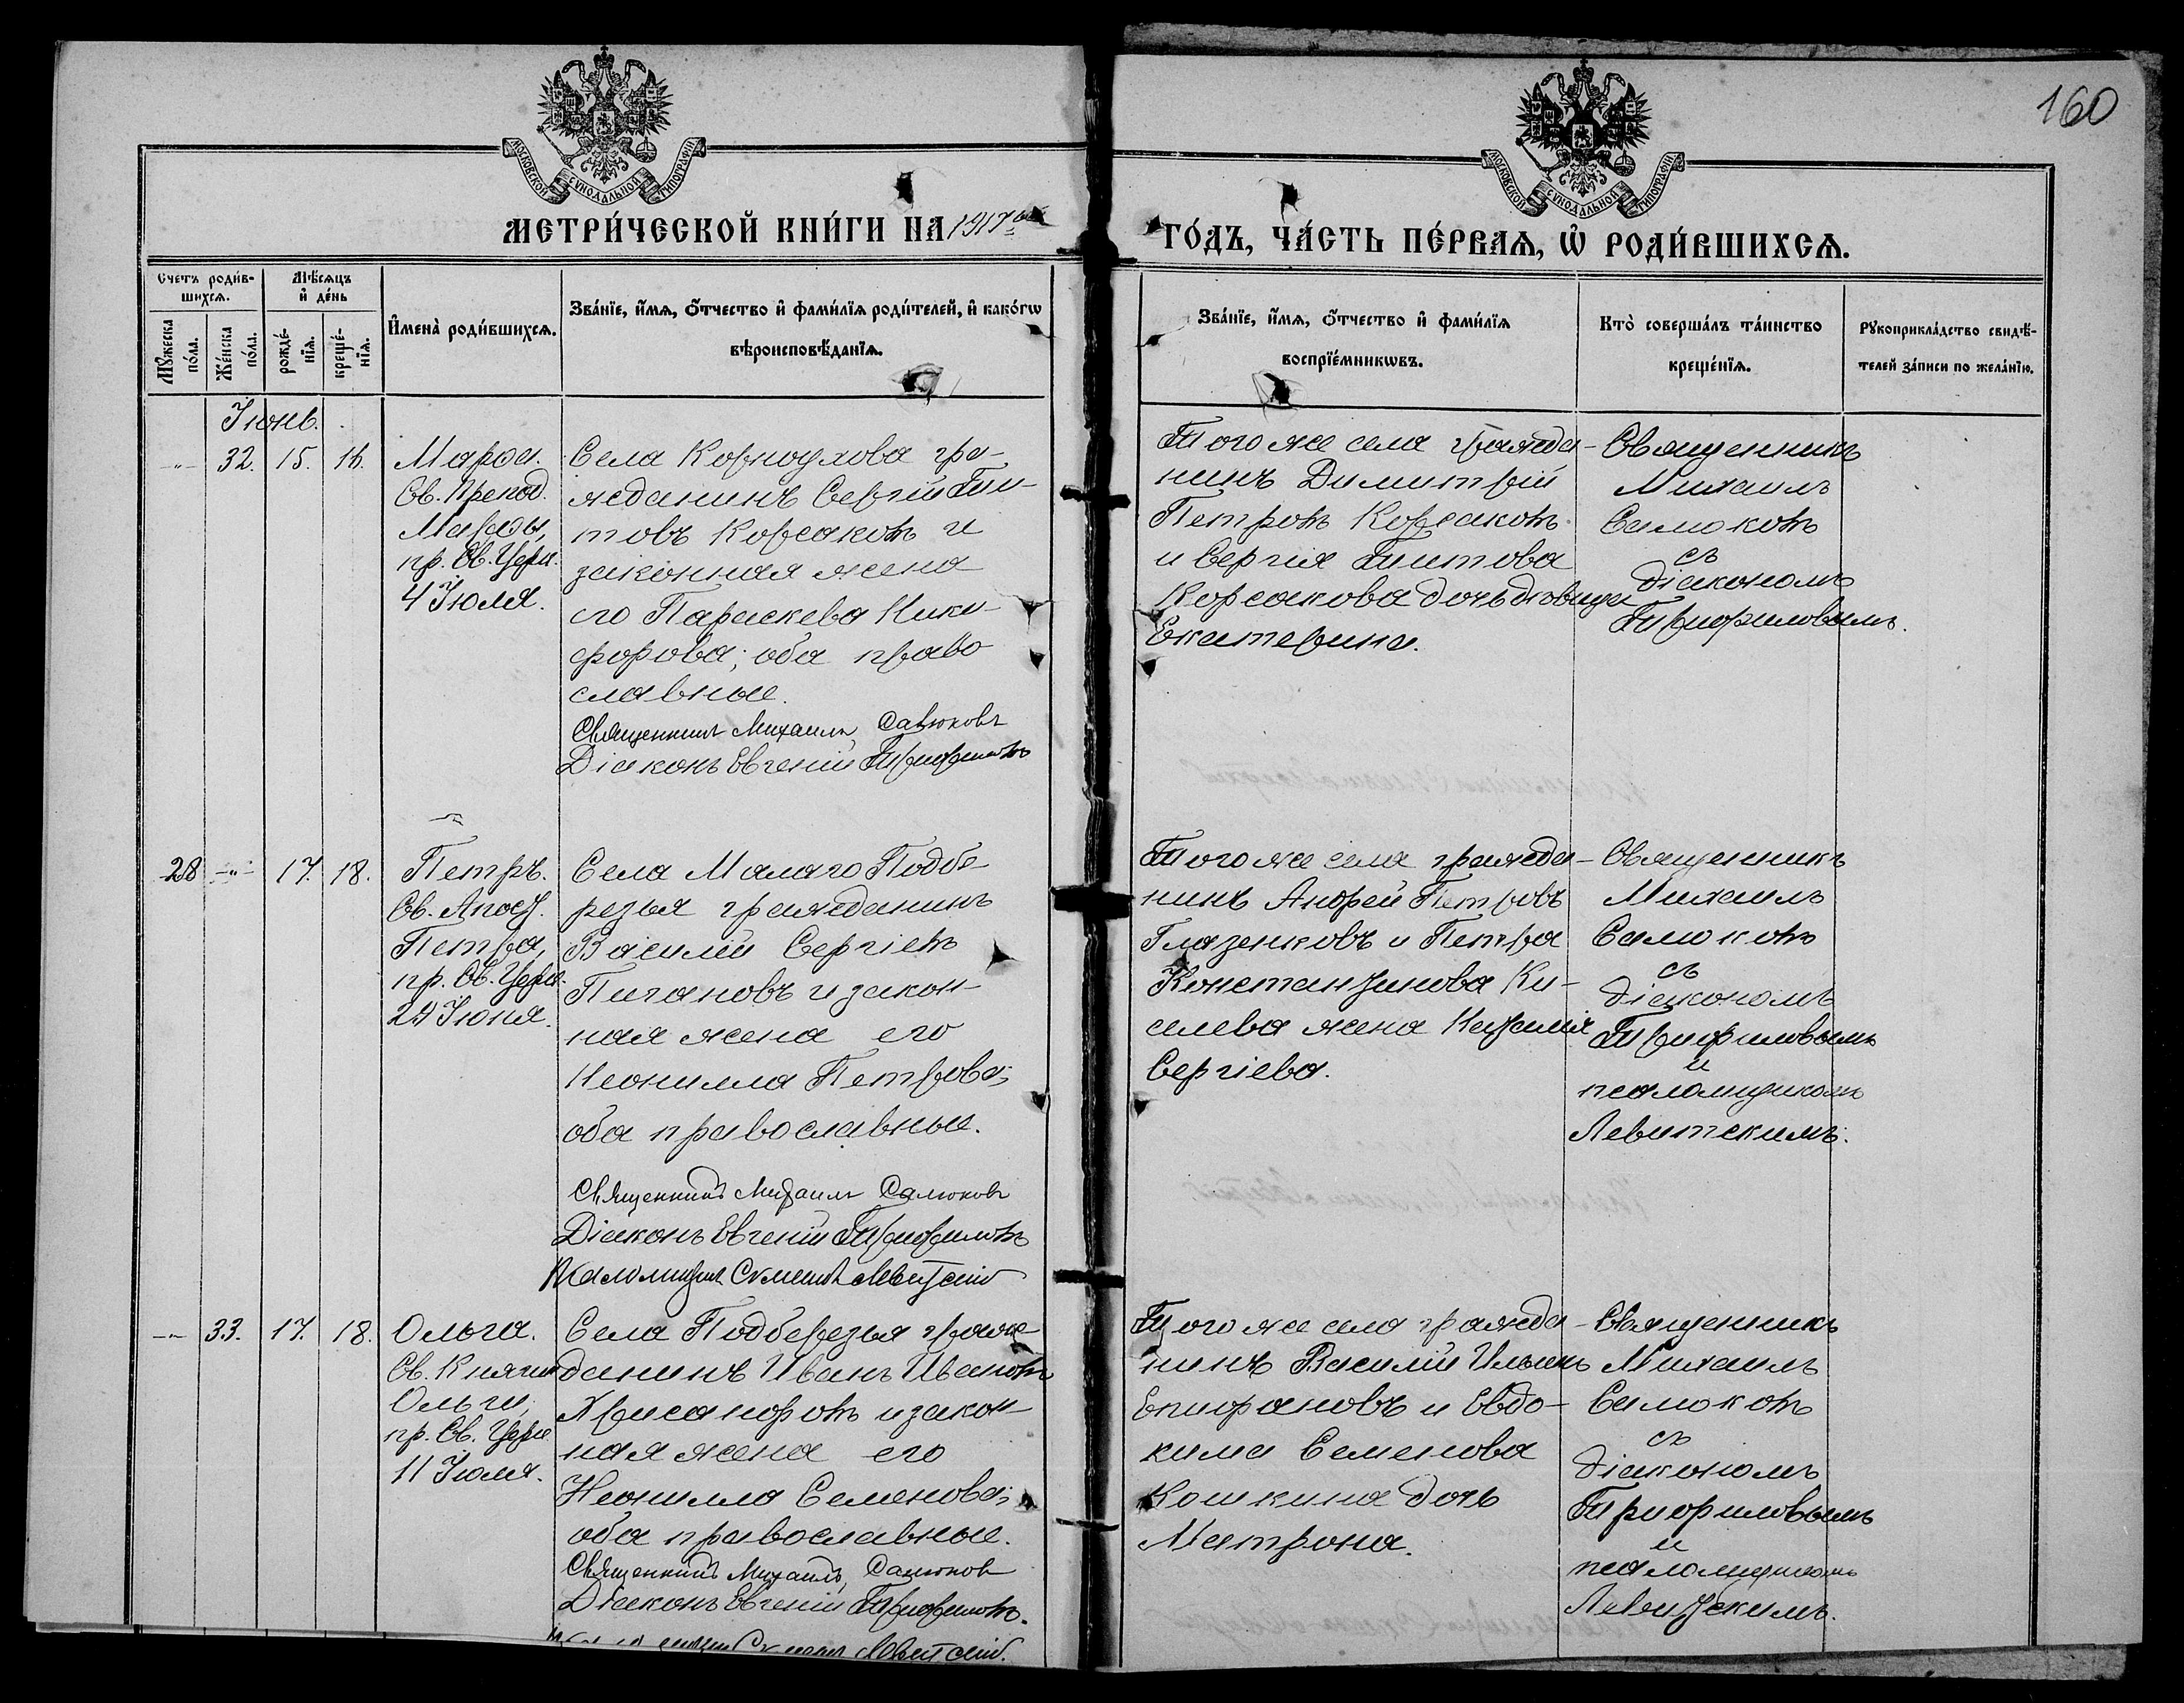 160
МОСКОВСКОЙ СѴНОДАЛЬНОЙ ТИПОГРАФІИ
МОСКОВСКОЙ СѴНОДАЛЬНОЙ ТИПОГРАФІИ
МЕТРИ́ЧЕСКОЙ КНИ́ГИ НА 1917
ГО́ДЪ, ЧА́СТЬ ПЕ́РВАѦ, Ѡ РОДИ́ВШИХСѦ.
Счетъ роди́в-
шихсѧ.
Мѣсѧцъ
и де́нь
Мꙋжеска
по́ла.
Же́нска
по́ла.
рожде́-
нїѧ.
креще́-
нїѧ.
И҆мена̀ роди́вшихсѧ.
Зва́нїе, и҆́мѧ, ѻ҆́тчество и҆ фами́лїѧ роди́телей, и҆ како́гѡ
вѣроисповѣ́данїѧ.
Зва́нїе, и҆́мѧ, ѻ҆́тчество и҆ фами́лїѧ
воспрїе́мникѡвъ.
Кто̀ соверша́лъ та́инство
креще́нїѧ.
Рꙋкоприкла́дство свидѣ́-
телей за́писи по жела́нїю.
Іюнь.
-"- 32. 15. 16.
Марѳа.
Св. Препод.
Марѳы,
пр. Св. Церк.
4 Іюля.
Села Корноухова гра-
жданинъ Сергій Ти-
товъ Корсаковъ и
законная жена
его Параскева Ники-
форова; оба право
славные.
Священникъ Михаилъ Самоковъ
Діаконъ Евгеній Трифиловъ
Того же села гражда-
нинъ Димитрій
Петровъ Корсаковъ
и Сергія Титова
Корсакова дочь дѣвица
Екатерина.
Священникъ
Михаилъ
Самоковъ
съ
діакономъ
Трифиловымъ.
28 -"- 17. 18.
Петръ.
Св. Апост.
Петра,
пр. Св. Церк.
29 Іюня.
Села Малаго Подбе-
резья гражданинъ
Василій Сергіевъ
Пигановъ и закон-
ная жена его
Неонилла Петрова;
оба православные.
Священникъ Михаилъ Самоковъ
Діаконъ Евгеній Трифиловъ
Псаломщикъ Симеонъ Левитскій
Того же села гражда-
нинъ Андрей Петровъ
Глазенковъ и Петра
Константинова Ки-
селева жена Наталія
Сергіева.
Священникъ
Михаилъ
Самоковъ
съ
діакономъ
Трифиловымъ
и
псаломщикомъ
Левитскимъ.
-"- 33. 17. 18.
Ольга.
Св. Княгин
Ольги,
пр. Св. Церк.
11 Іюля.
Села Подберезья граж-
данинъ Иванъ Ивановъ
Хрисанфовъ и закон-
ная жена его
Неонилла Семенова;
оба православные.
Священникъ Михаилъ Самоковъ
Діаконъ Евгеній Трифиловъ.
Левитскій.
Того же села гражда-
нинъ Василій Ильинъ
Епифановъ и Евдо-
кима Семенова
Кошкина дочь
Матрона.
Священникъ
Михаилъ
Самоковъ
съ
діакономъ
Трифиловымъ
и
псаломщикомъ
Левитскимъ.